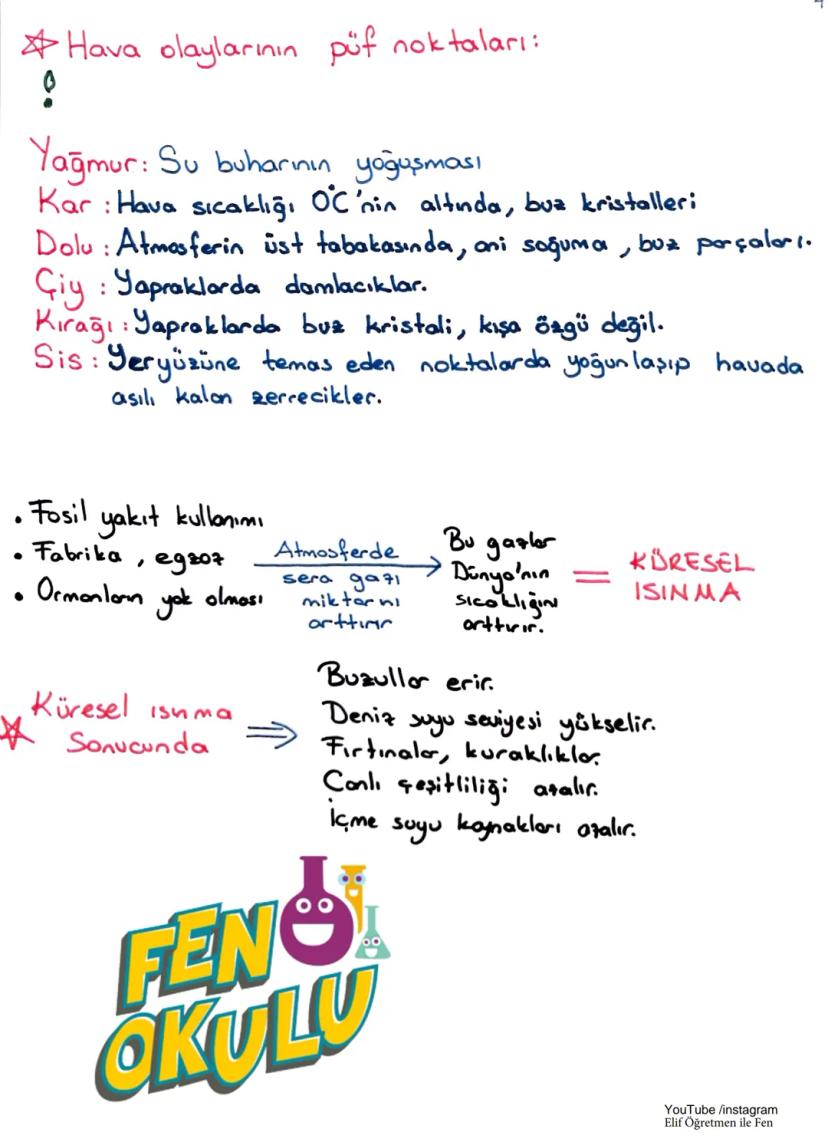 Hava olaylarının püf noktaları:
!
Yağmur: Su buharının yoğuşması
Kar: Hava sıcaklığı 0°C'nin altında, buz kristalleri
Dolu: Atmosferin üst tabakasında, ani soğuma, buz parçaları.
Çiy: Yapraklarda damlacıklar.
Kırağı: Yapraklarda buz kristali, kışa özgü değil.
Sis: Yeryüzüne temas eden noktalarda yoğunlaşıp havada
asılı kalan zerrecikler.
• Fosil yakıt kullanımı
• Fabrika, egzoz
• Ormanların yok olması
Atmosferde
sera gazı
miktarını
arttırır
Bu gazlar
Dünya'nın
sıcaklığını
arttırır.
=
KÜRESEL
ISINMA
Küresel ısınma
Sonucunda
Buzullar erir.
Deniz suyu seviyesi yükselir.
Fırtınalar, kuraklıklar.
Canlı çeşitliliği azalır.
İçme suyu kaynakları azalır.
FEN
OKULU
YouTube /instagram
Elif Öğretmen ile Fen